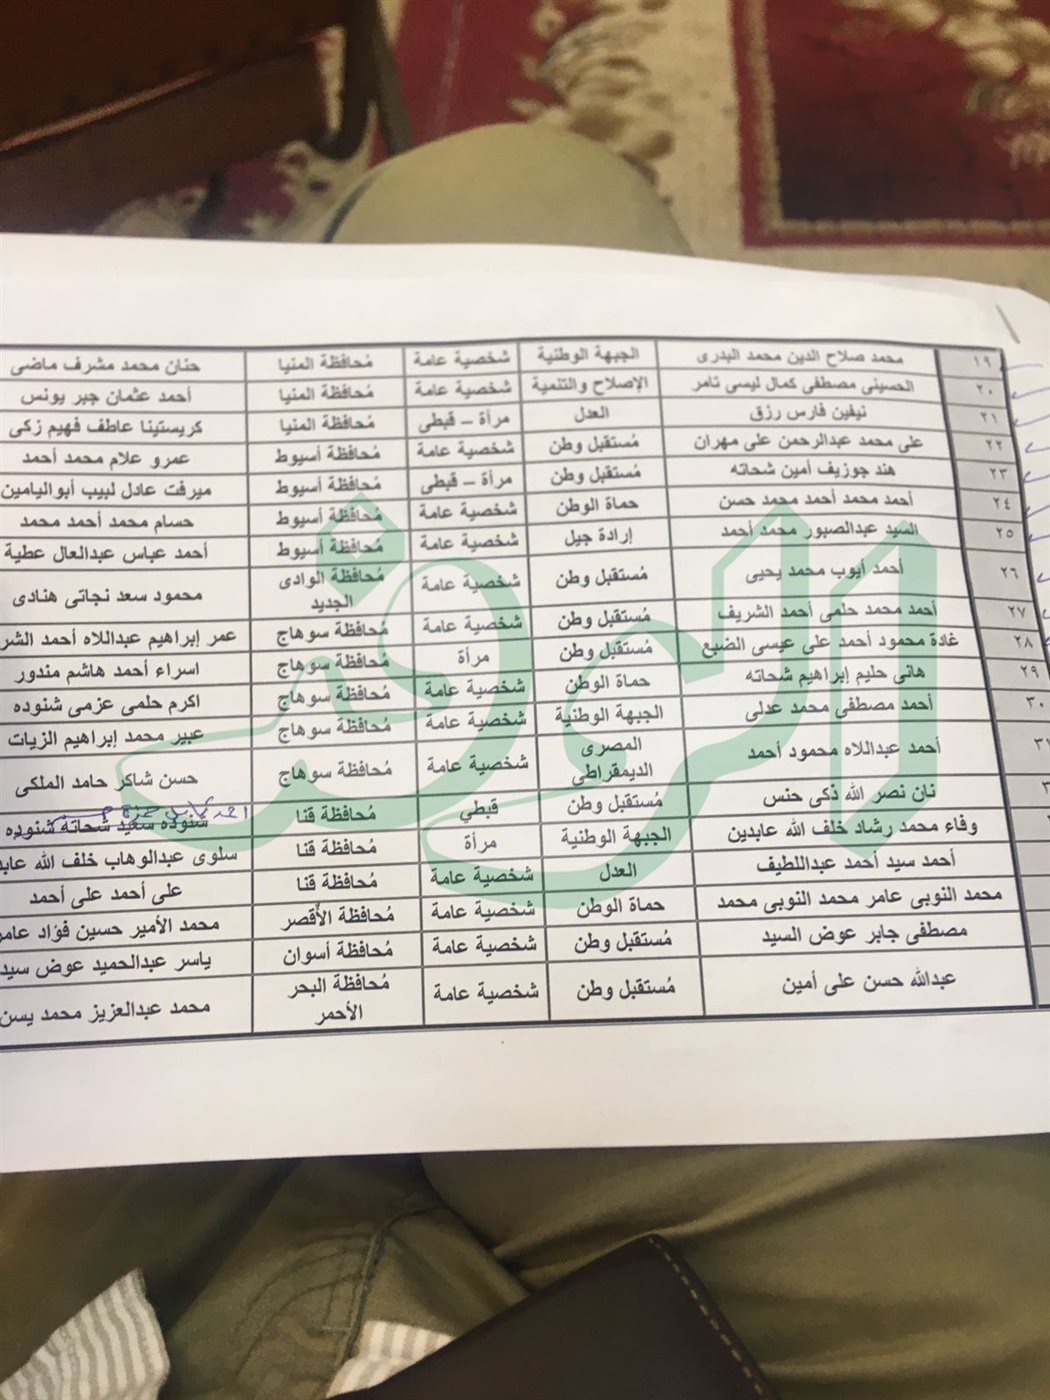 ١٩ محمد صلاح الدين محمد البدرى الجبهة الوطنية شخصية عامة مُحافظة المنيا حنان محمد مشرف ماضى
٢٠ الحسينى مصطفى كمال ليسى تامر الإصلاح والتنمية شخصية عامة مُحافظة المنيا أحمد عثمان جبر يونس
٢١ نيفين فارس رزق العدل مرأة – قبطى مُحافظة المنيا كريستينا عاطف فهيم زكى
٢٢ على محمد عبدالرحمن على مهران مُستقبل وطن شخصية عامة مُحافظة أسيوط عمرو علام محمد أحمد
٢٣ هند جوزيف أمين شحاته مُستقبل وطن مرأة – قبطى مُحافظة أسيوط ميرفت عادل لبيب أبواليامين
٢٤ أحمد محمد أحمد محمد حسن حماة الوطن شخصية عامة مُحافظة أسيوط حسام محمد أحمد محمد
٢٥ السيد عبدالصبور محمد أحمد إرادة جيل شخصية عامة مُحافظة أسيوط أحمد عباس عبدالعال عطية
٢٦ أحمد أيوب محمد يحيى مُستقبل وطن شخصية عامة مُحافظة الوادى الجديد محمود سعد نجاتى هنادى
٢٧ أحمد محمد حلمى أحمد الشريف مُستقبل وطن شخصية عامة مُحافظة سوهاج عمر إبراهيم عبداللاه أحمد الشر
٢٨ غادة محمود أحمد على عيسى الضبع مُستقبل وطن مرأة مُحافظة سوهاج اسراء أحمد هاشم مندور
٢٩ هانى حليم إبراهيم شحاته حماة الوطن شخصية عامة مُحافظة سوهاج اكرم حلمى عزمى شنوده
٣٠ أحمد مصطفى محمد عدلى الجبهة الوطنية شخصية عامة مُحافظة سوهاج عبير محمد إبراهيم الزيات
٣١ أحمد عبداللاه محمود أحمد المصرى الديمقراطى شخصية عامة مُحافظة سوهاج حسن شاكر حامد الملكى
نان نصر الله ذكى حنس مُستقبل وطن قبطي مُحافظة قنا شنوده سعيد شحاته شنوده
وفاء محمد رشاد خلف الله عابدين الجبهة الوطنية مرأة مُحافظة قنا سلوى عبدالوهاب خلف الله عابد
أحمد سيد أحمد عبداللطيف العدل شخصية عامة مُحافظة قنا على أحمد على أحمد
محمد النوبى عامر محمد النوبى محمد حماة الوطن شخصية عامة مُحافظة الأقصر محمد الأمير حسين فؤاد عامر
مصطفى جابر عوض السيد مُستقبل وطن شخصية عامة مُحافظة أسوان ياسر عبدالحميد عوض سيد
عبدالله حسن على أمين مُستقبل وطن شخصية عامة مُحافظة البحر الأحمر محمد عبدالعزيز محمد يسن
الوفد